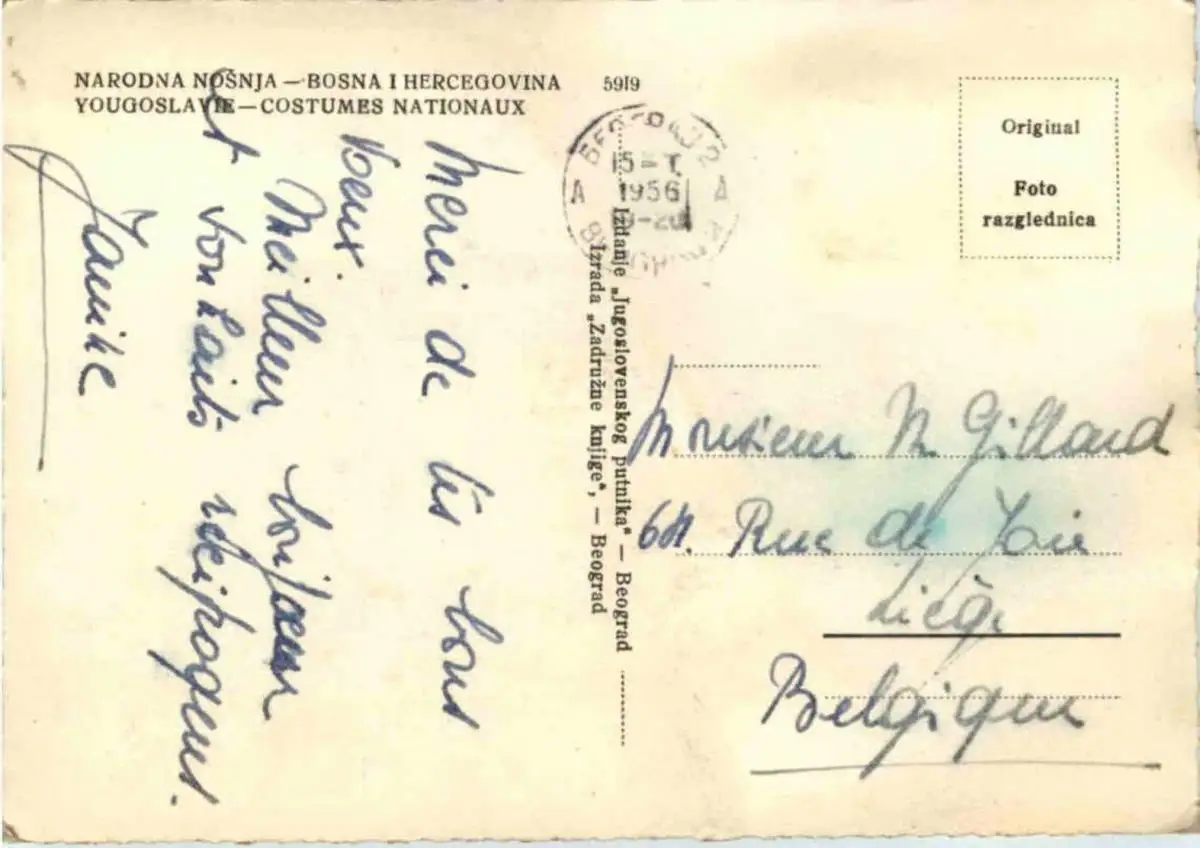 NARODNA NOŠNJA — BOSNA I HERCEGOVINA 5919
YOUGOSLAVIE — COSTUMES NATIONAUX
Merci de tes bons
Voeux.
Meilleur bonjour
et souhaits réciproques.
Janike
15 I.
1956
A A
Izdanje „Jugoslovenskog putnika“ — Beograd
Izrada „Zadružne knjige“, — Beograd
Original
Foto
razglednica
Monsieur M Gillard
Rue de Joie
Liège
Belgique